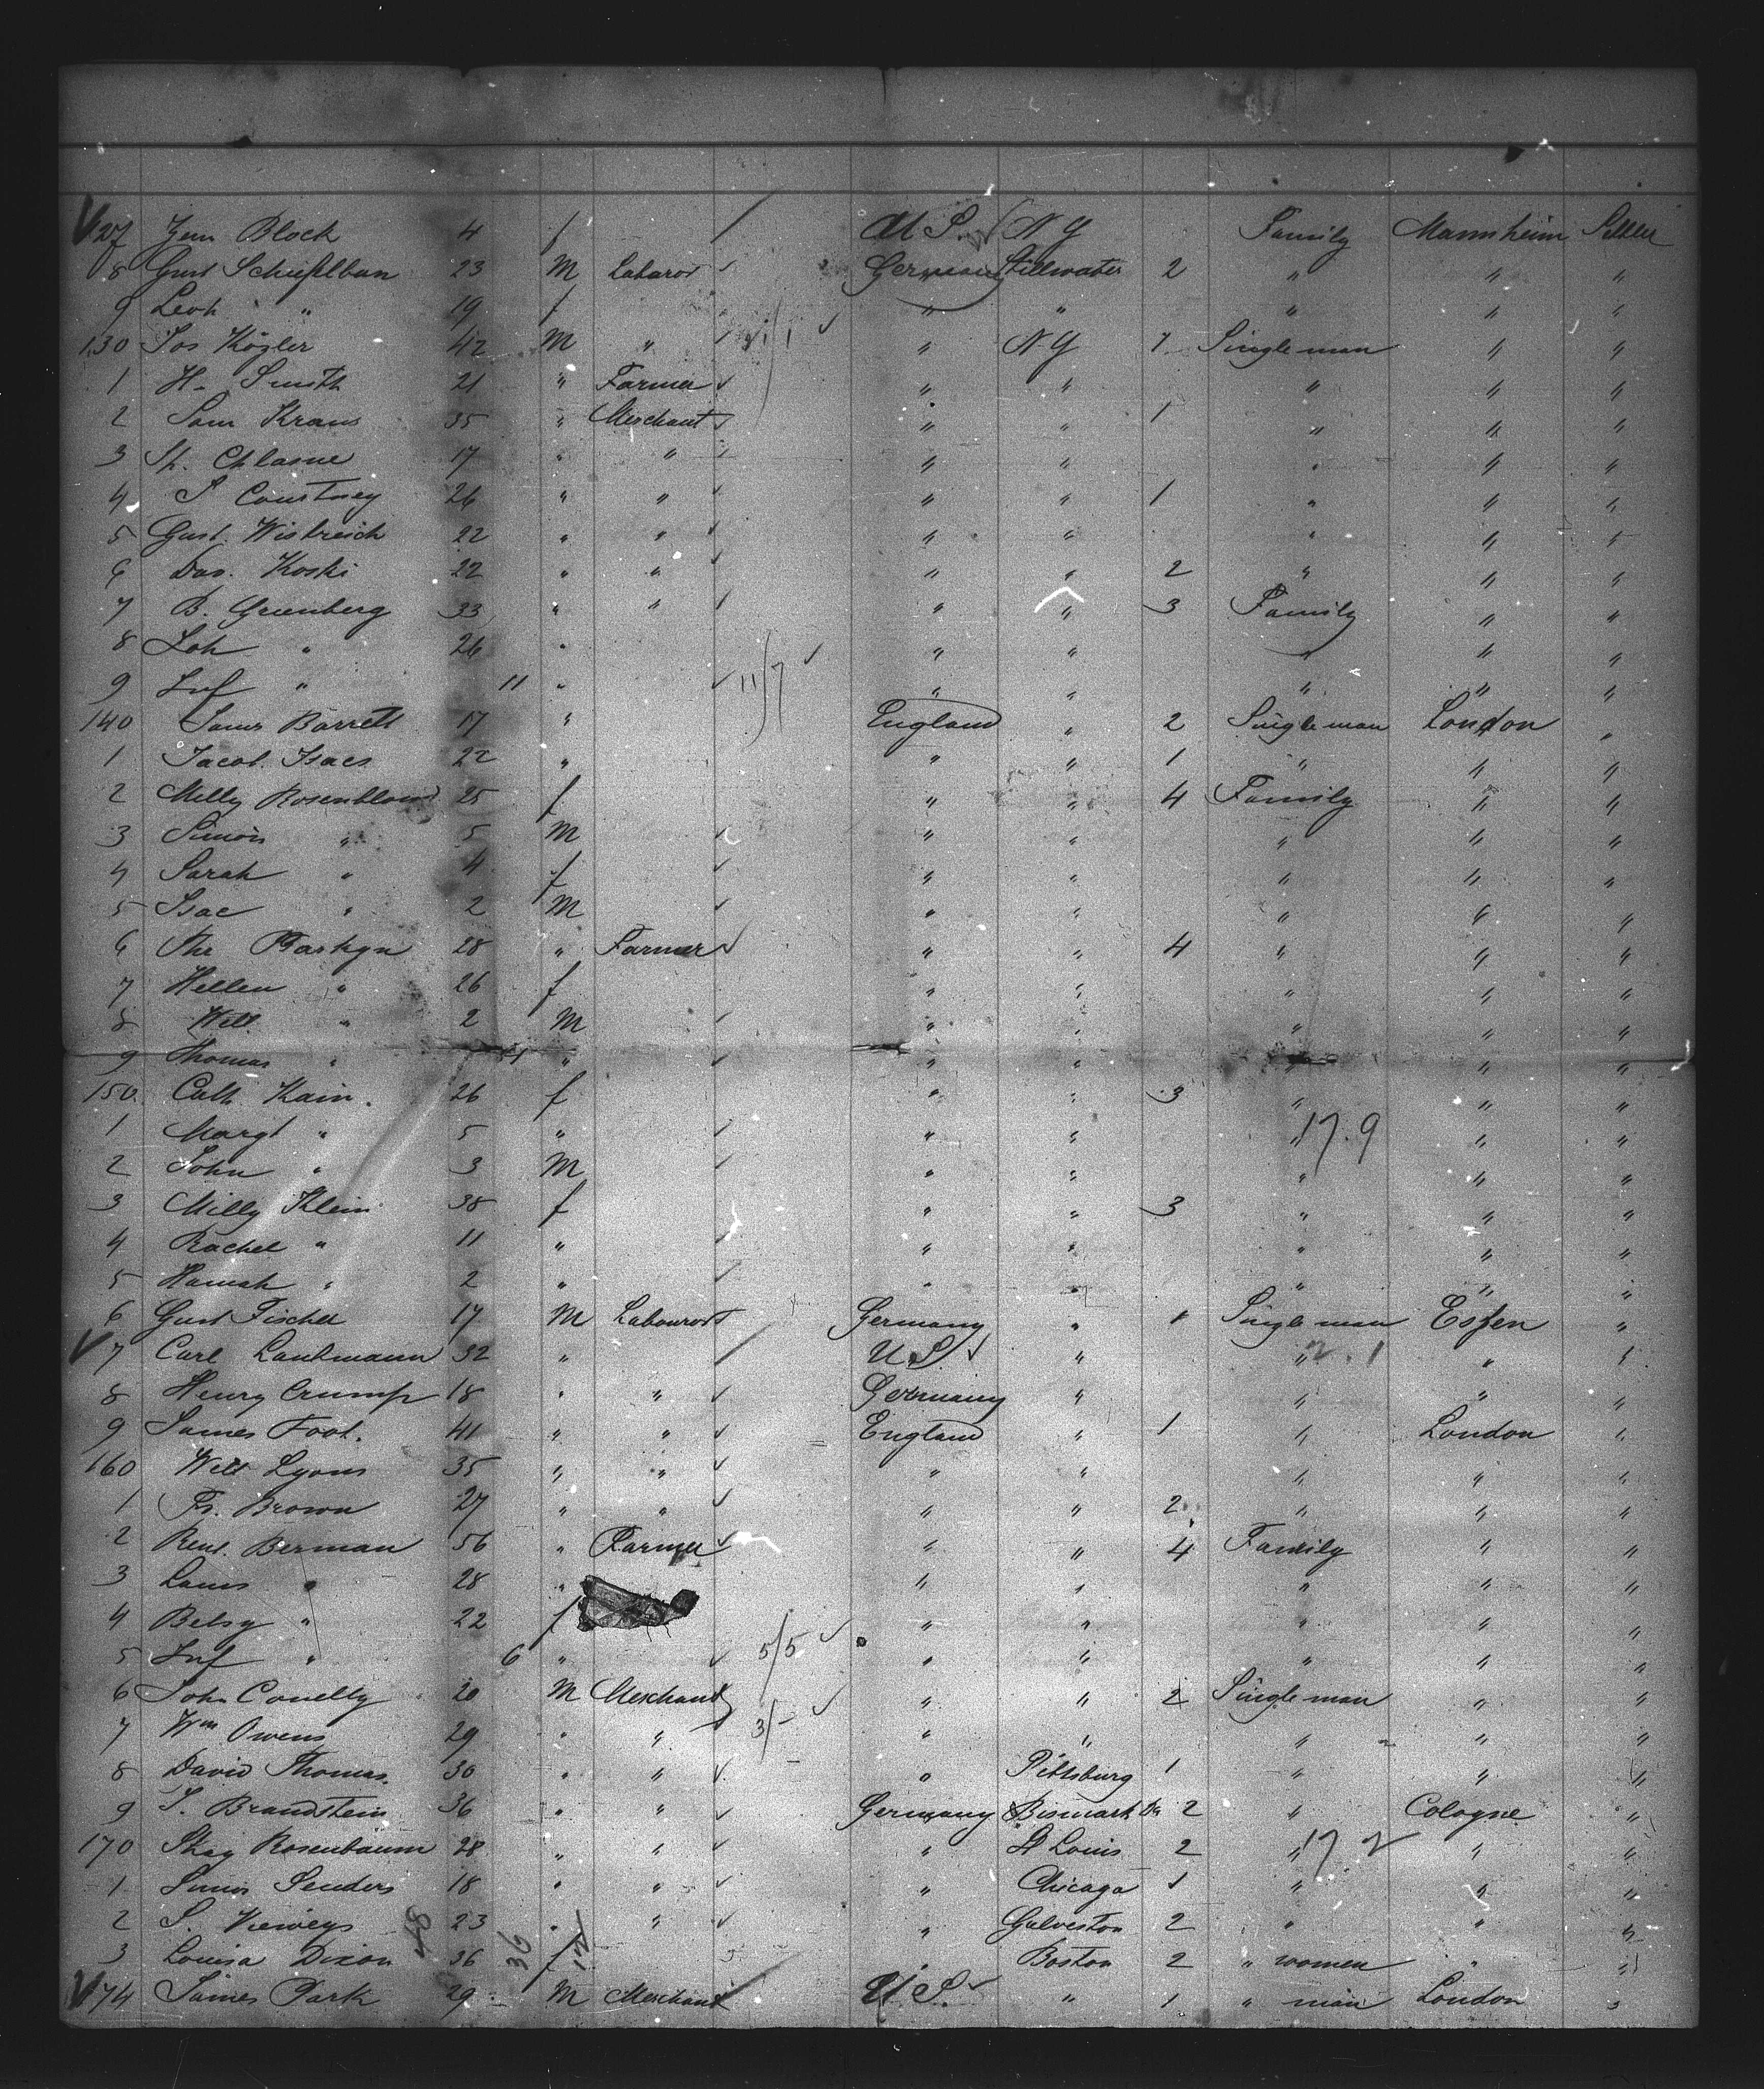 127 Block 4 f U.S. N Y Family Mannheim Settler
8 Gust Schieflbun 23 M Laboror Germany Stillwater 2 " " "
9 Leoh " 19 f " " " " "
130 Jos Közler 42 M " " N Y 1 Single man " "
1 H. Smith 21 " Farmer " " " " "
2 Sam Kraus 35 " Merchant " " 1 " " "
3 17 " " " " " " "
4 S Courtney 26 " " " " 1 " " "
5 Gust. Wistreich 22 " " " " " " "
6 Dav. Koski 22 " " " " 2 " " "
7 B. Greenberg 33 " " " " 3 Family " "
8 " 26 " " " " " "
9 Inf " 11 " 11/7 " " " " "
140 James Barrett 17 " England " 2 Single man London "
1 Jacob Isacs 22 " " " 1 " " "
2 Milly Rosenbloum 25 f " " 4 Family " "
3 Simon " 5 M " " " " "
4 Sarah " 4 f " " " " "
5 Isac " 2 M " " " " "
6 28 " Farmer " " 4 " " "
7 Hellen " 26 f " " " " "
8 Will " 2 M " " " " "
9 Thomas " " " " " " "
150 Cath. Kain. 26 f " " 3 " " "
1 Margt " 5 " " " " 17.9 " "
2 John " 3 M " " " " "
3 Milly Klein 38 f " " 3 " " "
4 Rachel " 11 " " " " " "
5 Hannah " 2 " " " " " "
6 Gust Fischer 17 M Labouror Germany " 1 Single man Essen "
7 Carl Lautmann 32 " U.S. " " 2.1 " "
8 Henry Crump 18 " " Germany " " " "
9 James Foot. 41 " " England " 1 " London "
160 Will Lyons 35 " " " " " " "
1 Fr. Brown 27 " " " " 2 " " "
2 Berman 56 " Farmer " " 4 Family " "
3 Louis " 28 " " " " " "
4 Betsy " 22 f " " " " "
5 Inf " 6 " 5/5 " " " " "
6 John Conelly 20 M Merchant " " 2 Single man " "
7 Wm Owens 29 " " 3/- " " " " "
8 David Thomas. 30 " " " Pittsburg 1 " " "
9 S. Brandstein 36 " " Germany Bismark Da 2 " Cologne "
170 Rosenbaum 28 " " " St Louis 2 " 17 2 " "
1 Senders 18 " " " Chicago 1 " " "
2 S. 23 " " " Galveston 2 " " "
3 Louisa Dixon 36 f " Boston 2 " women " "
174 James Park 29 M Merchant U S. " 1 " man London "